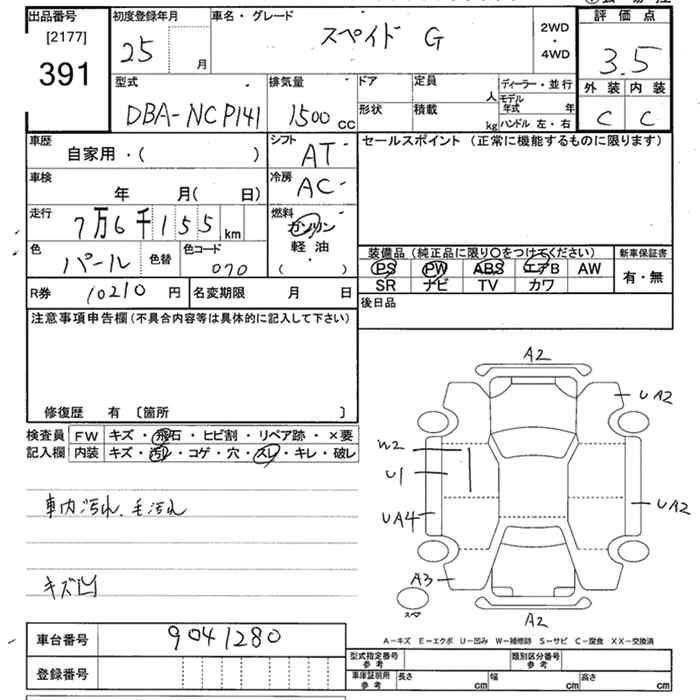 出品番号 初度登録年月 車名・グレード 評価点
[2177] スペイド G 2WD
391 25 月 ・ 3.5
4WD
型式 排気量 ドア 定員 人 ディーラー・並行 外装 内装
DBA-NCP141 1500 CC 形状 積載 kg モデル年式 年 C C
ハンドル 左・右
車歴 シフト セールスポイント (正常に機能するものに限ります)
自家用・( ) AT
車検 冷房
年 月( 日) AC
走行 燃料
7万6千155 km ガソリン
色 色替 色コード 軽油
パール 070 ・
( )
装備品 (純正品に限り○をつけてください) 新車保証書
PS PW ABS エアB AW 有・無
SR ナビ TV カワ
R券 10210 円 名変期限 月 日 後日品
注意事項申告欄 (不具合内容等は具体的に記入して下さい)
修復歴 有 〔箇所 〕
検査員 FW キズ・飛石・ヒビ割・リペア跡・×要
記入欄 内装 キズ・汚レ・コゲ・穴・スレ・キレ・破レ
車内汚れ、毛汚れ
キズ凹
A2
UA2
W2
U1
UA4
UA2
A3
スペア
A2
A−キズ E−エクボ U−凹み W−補修跡 S−サビ C−腐食 XX−交換済
車台番号 9041280
登録番号
型式指定番号 参考 類別区分番号 参考
車庫証明所 参考 長さ cm 幅 cm 高さ cm